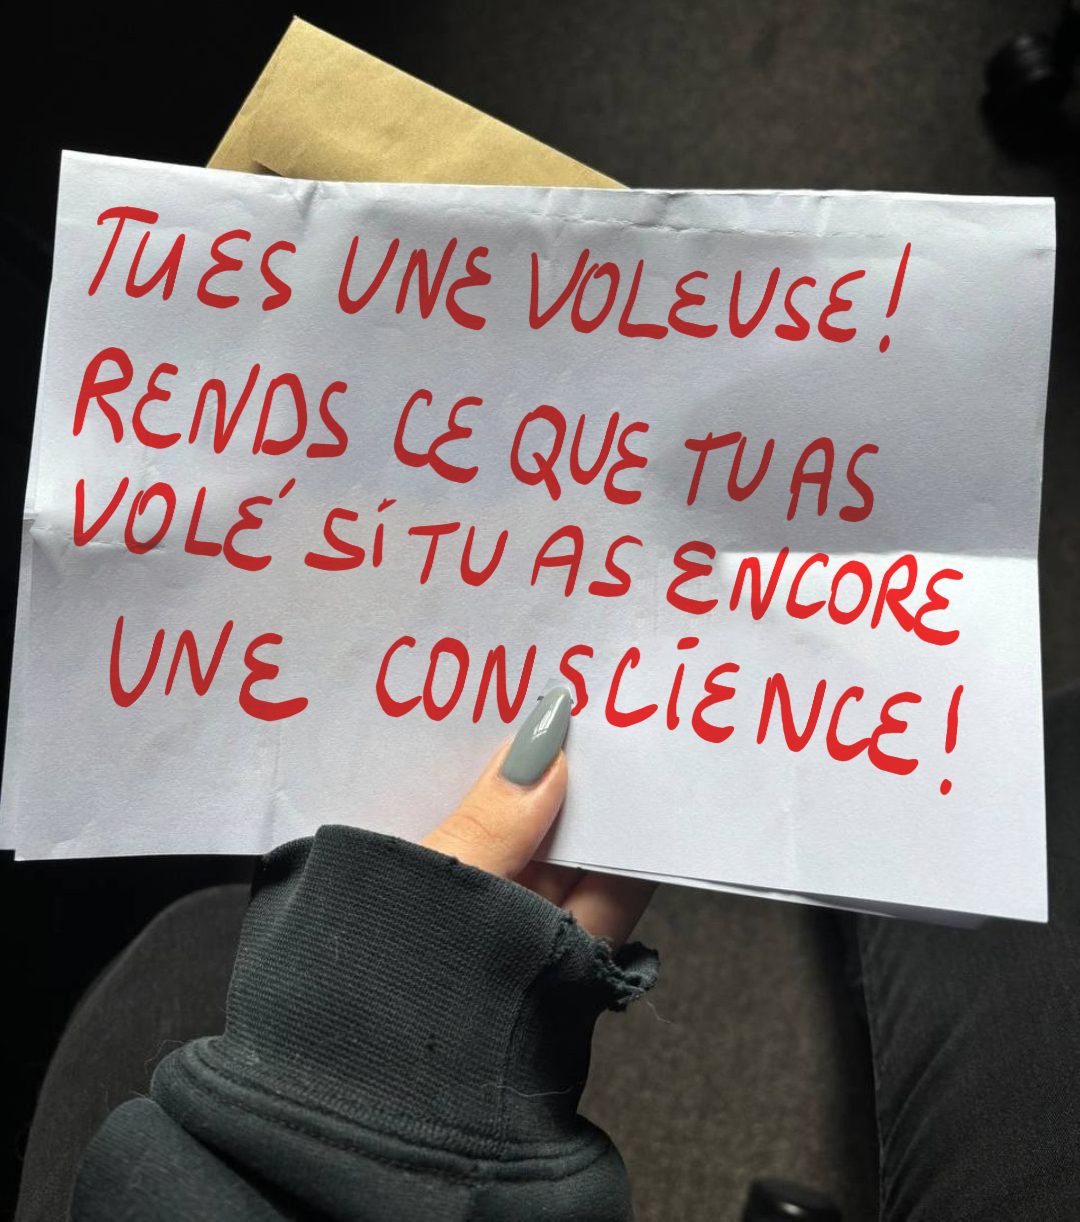 TU ES UNE VOLEUSE!
RENDS CE QUE TU AS
VOLÉ SI TU AS ENCORE
UNE CONSCIENCE!